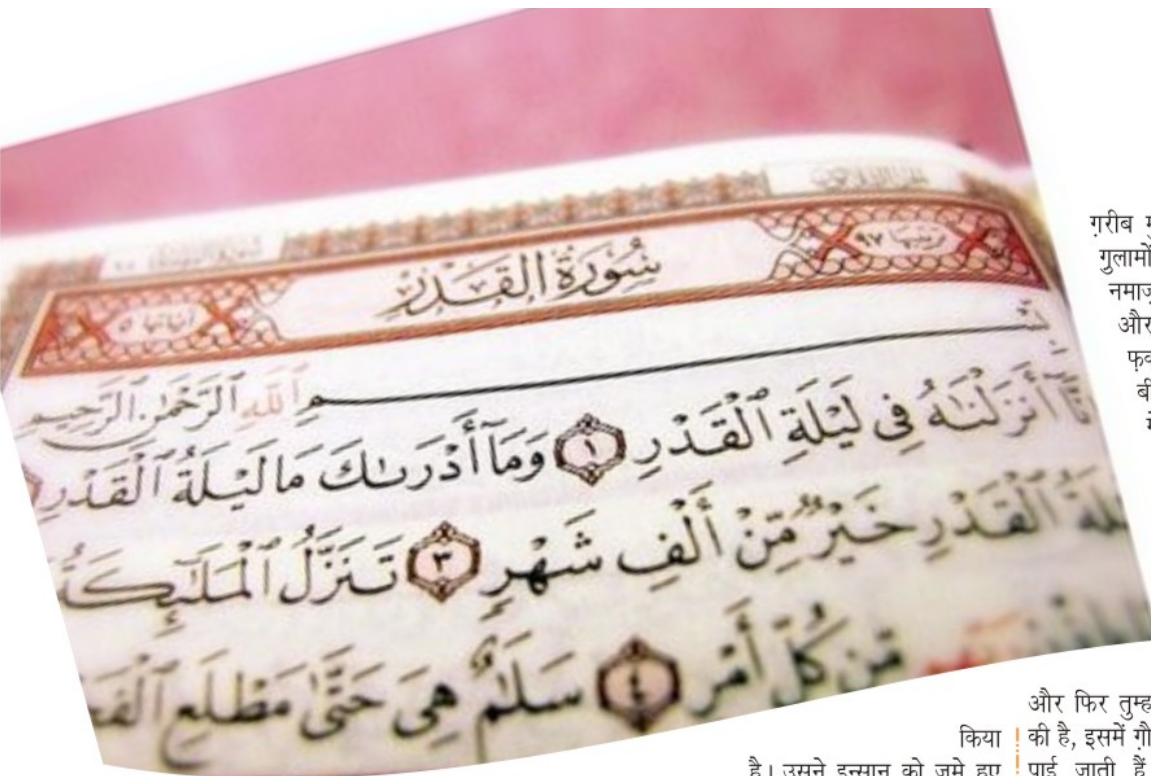 سُورَةُ الْقَدْرِ
ترتيبها ٩٧
آياتها ٥
بِسْمِ ٱللَّهِ ٱلرَّحْمَٰنِ ٱلرَّحِيمِ
أَنزَلْنَٰهُ فِى لَيْلَةِ ٱلْقَدْرِ ١ وَمَآ أَدْرَىٰكَ مَا لَيْلَةُ ٱلْقَدْرِ
ٱلْقَدْرِ خَيْرٌ مِّنْ أَلْفِ شَهْرٍ ٣ تَنَزَّلُ ٱلْمَلَٰٓئِكَةُ
مِّن كُلِّ أَمْرٍ ٤ سَلَٰمٌ هِىَ حَتَّىٰ مَطْلَعِ
ग़रीब
गुलामों
और
और फिर
किया
की है, इसमें
है। उसने इन्सान को जमे हुए
पाई जाती हैं